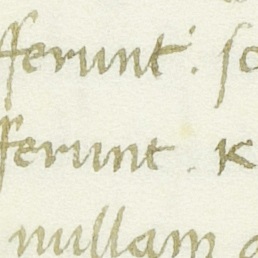 fferunt. sc
fferunt. K
nullam